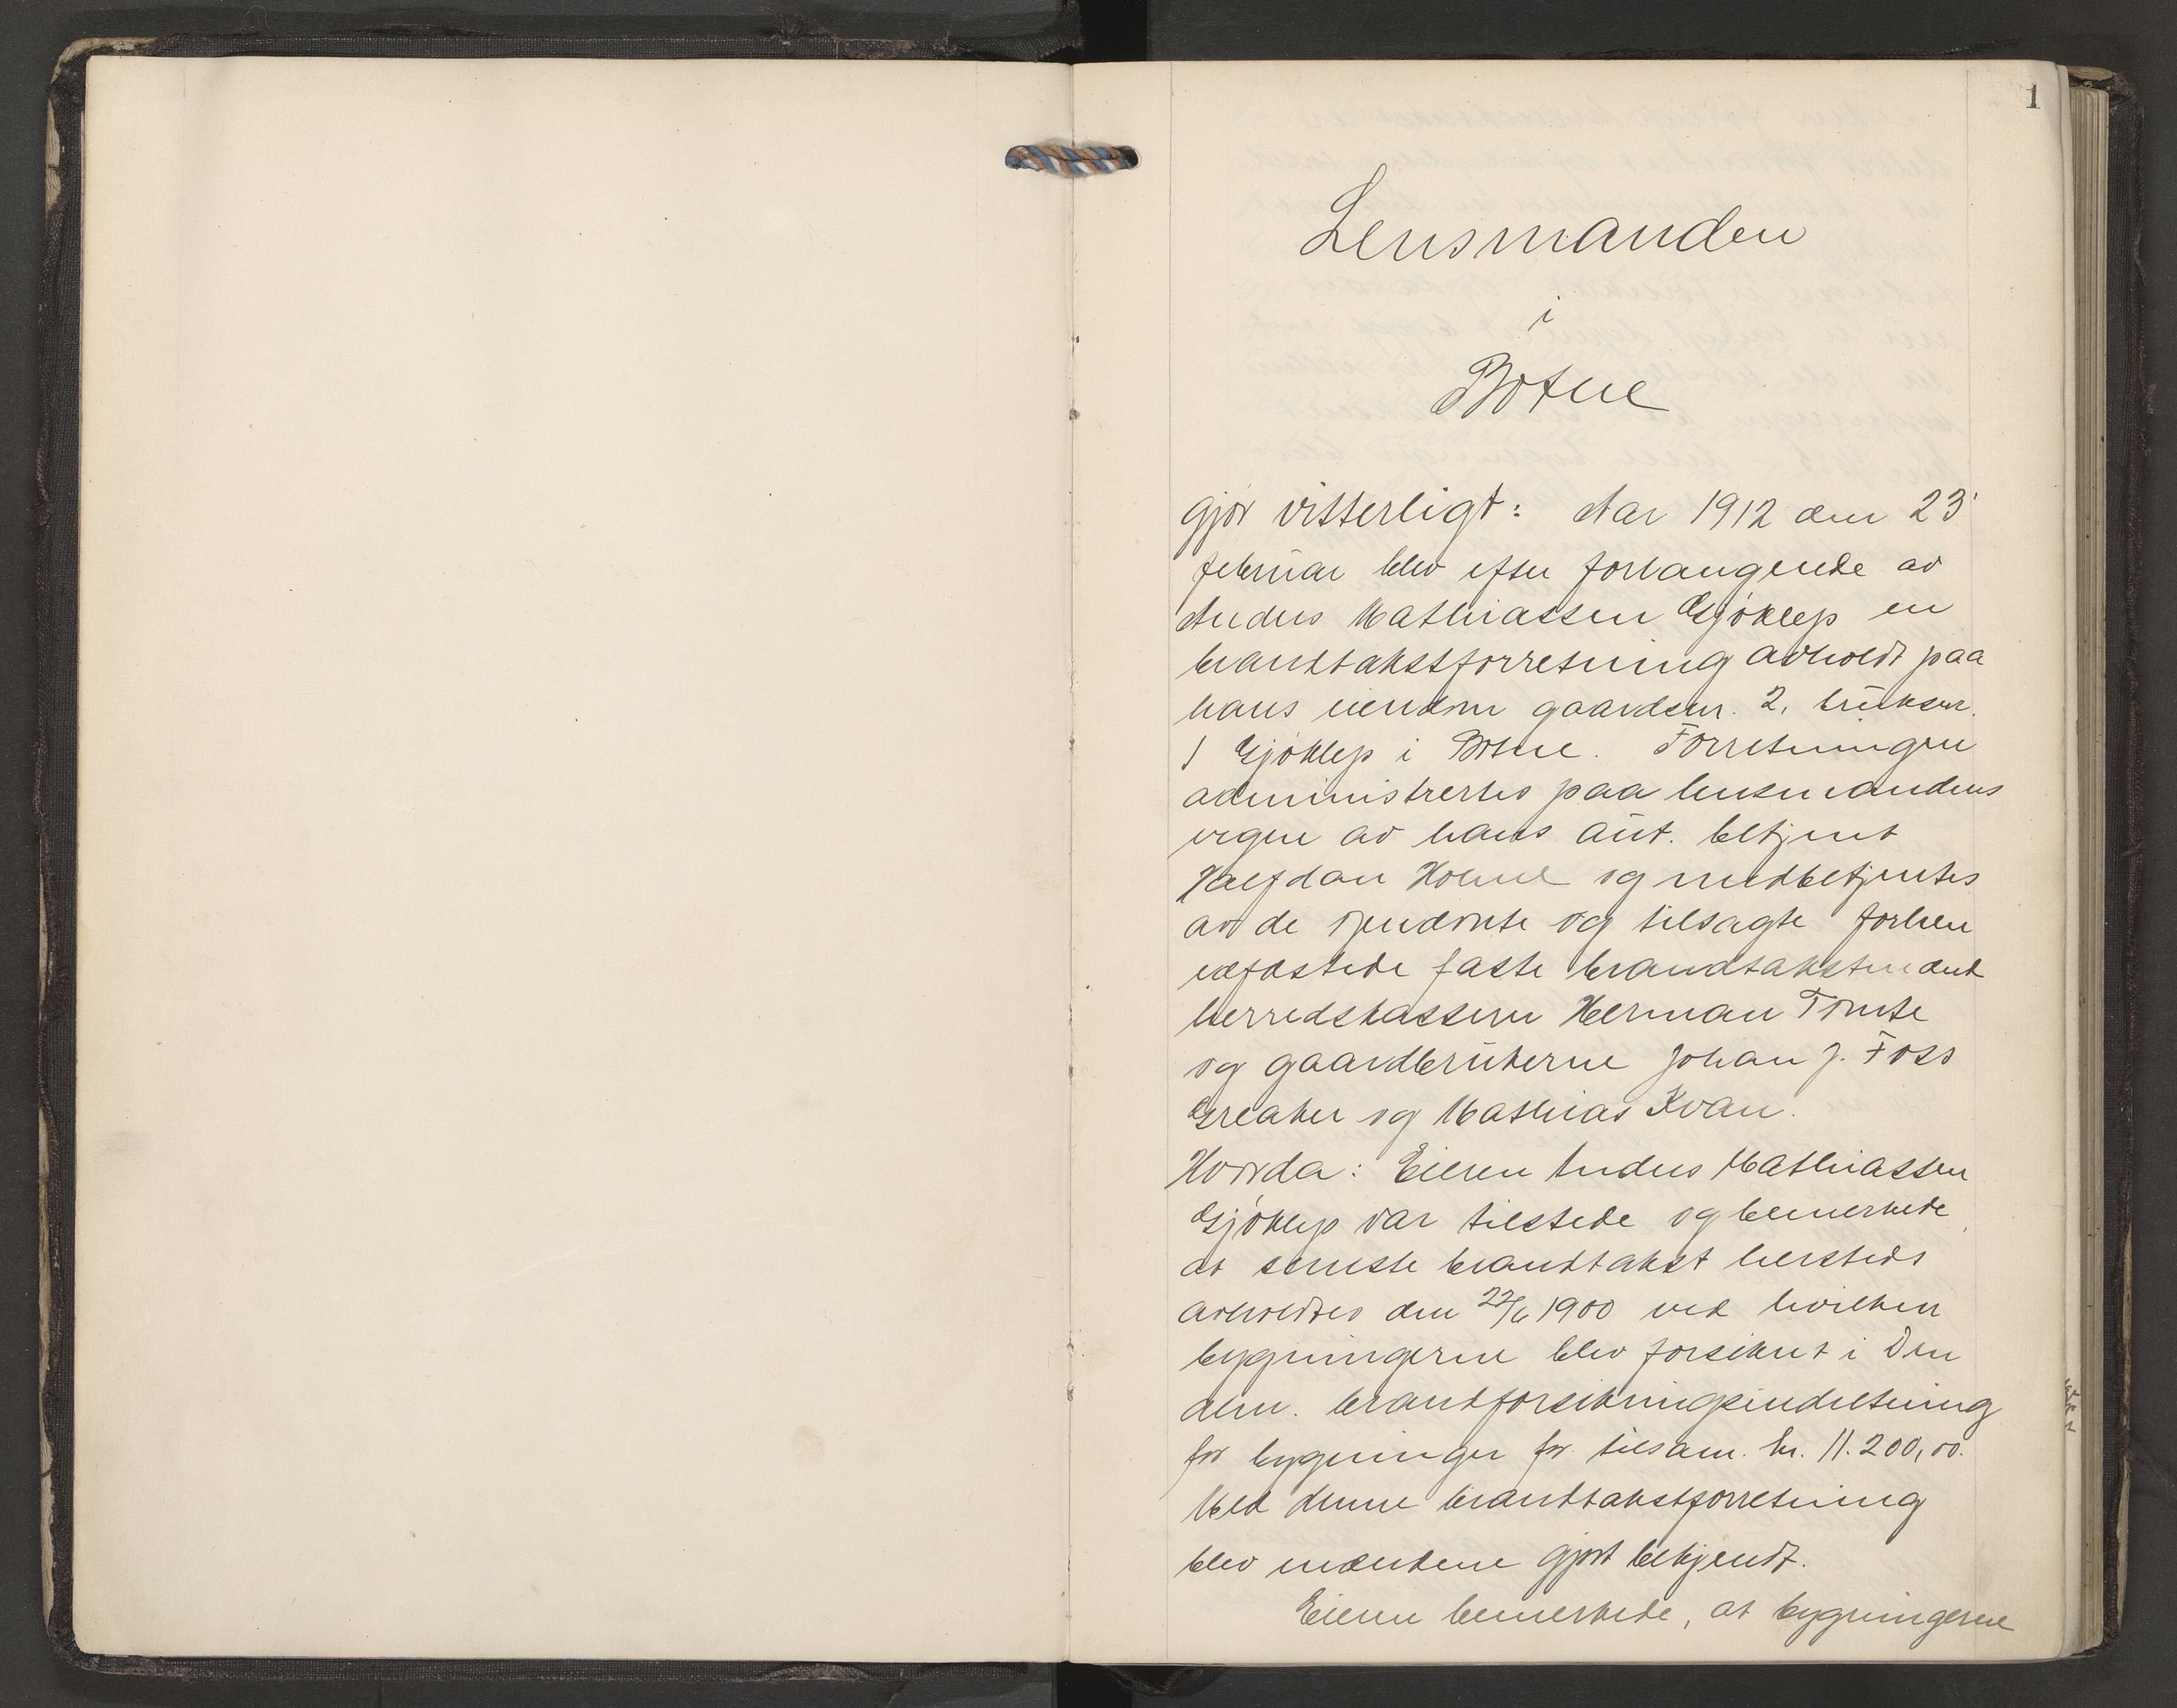 1
Lensmanden
i
Botne
gjør vitterligt: Aar 1912 den 23'
februar blev efter forlangende av
Anders Mathiassen Gjøklep en
brandtakstforretning avholdt paa
hans eiendom gaardsnr. 2, bruksnr.
1 Gjøklep i Botne. Forretningen
administrertes paa lensmandens
vegne av hans aut. betjent
Halfdan Holme og medbetjentes
av de opnævnte og tilsagte forhen
edfæstede faste brandtakstmænd
herredskasserer Herman Tomte
og gaardbrukerne Johan J. Foss
Greaker og Mathias Kvan.
Hvorda: Eieren Anders Mathiassen
Gjøklep var tilstede og bemerkede
at seneste brandtakst hersteds
avholdtes den 22/6 1900 ved hvilken
bygningerne blev forsikret i Den
alm. brandforsikringsindretning
for bygninger for tilsam. kr. 11.200,00.
Med denne brandtakstforretning
blev mændene gjort bekjendt.
Eieren bemerkede, at bygningerne